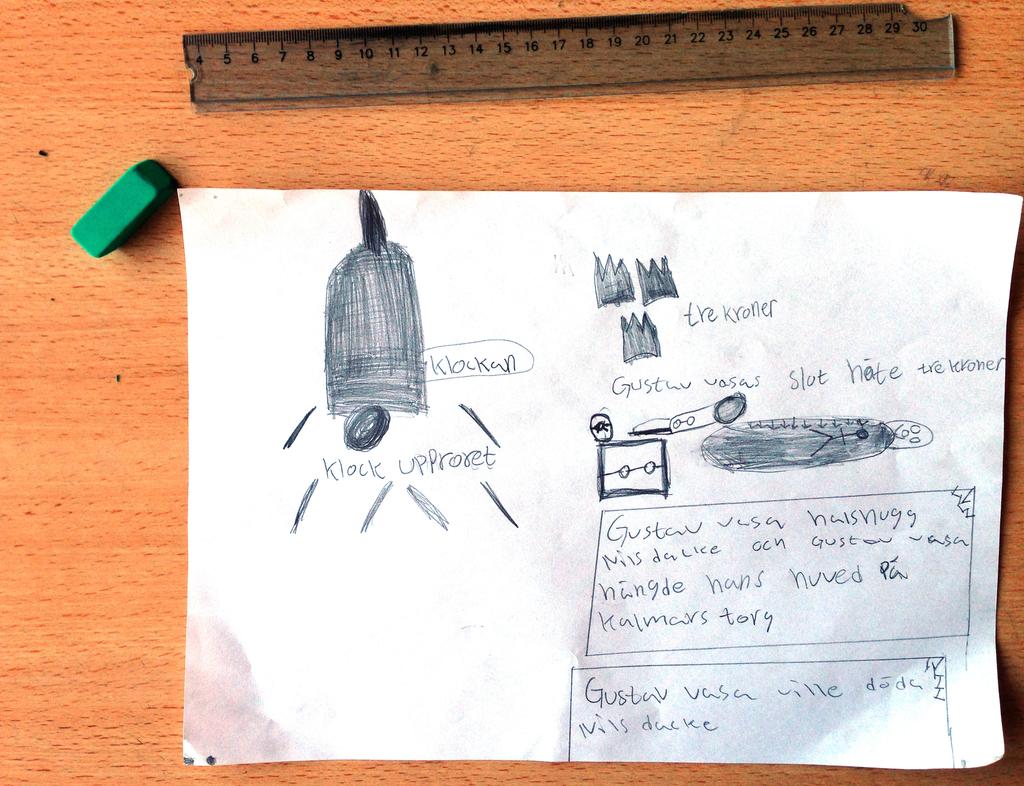 4 5 6 7 8 9 10 11 12 13 14 15 16 17 18 19 20 21 22 23 24 25 26 27 28 29 30
klockan
klock upproret
tre kroner
Gustav vasas slot häte tre kroner
Gustav vasa halshugg
Nils dacke och Gustav vasa
hängde hans huved på
Kalmars torg
Gustav vasa ville döda
Nils dacke